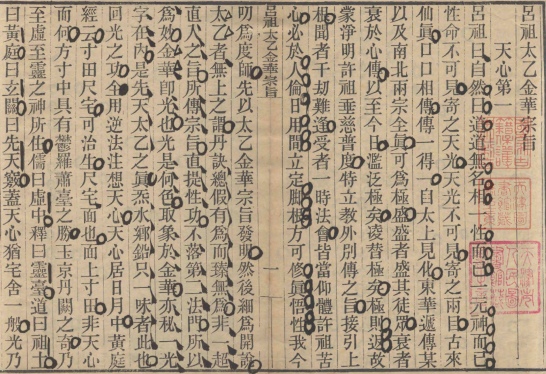 呂祖太乙金華宗旨
天心第一
呂祖曰自然曰道道無名相一性而已一元神而已
性命不可見寄之天光天光不可見寄之兩目古來
仙眞口口相傳傳一得一自太上見化東華遞傳某
以及南北兩宗全眞可為極盛盛者盛其徒衆衰者
衰於心傳以至今日濫泛極矣凌替極矣極則返故
蒙淨明許祖垂慈普度特立教外別傳之旨接引上
根聞者千劫難逢受者一時法會皆當仰體許祖苦
心必於人倫日用間立定脚根方可修眞悟性我今
呂祖太乙金華宗旨
一
叨為度師先以太乙金華宗旨發明然後細為開說
太乙者無上之謂丹訣總假有為而臻無為非一超
直入之旨所傳宗旨直提性功不落第二法門所以
為妙金華即光也光是何色取象於金華亦秘一光
字在內是先天太乙之眞炁水鄉鉛只一味者此也
回光之功全用逆法注想天心天心居日月中黃庭
經云寸田尺宅可治生尺宅面也面上寸田非天心
而何方寸中具有鬱羅蕭臺之勝玉京丹闕之奇乃
至虛至靈之神所住儒曰虛中釋曰靈臺道曰祖土
曰黃庭曰玄關曰先天竅蓋天心猶宅舍一般光乃